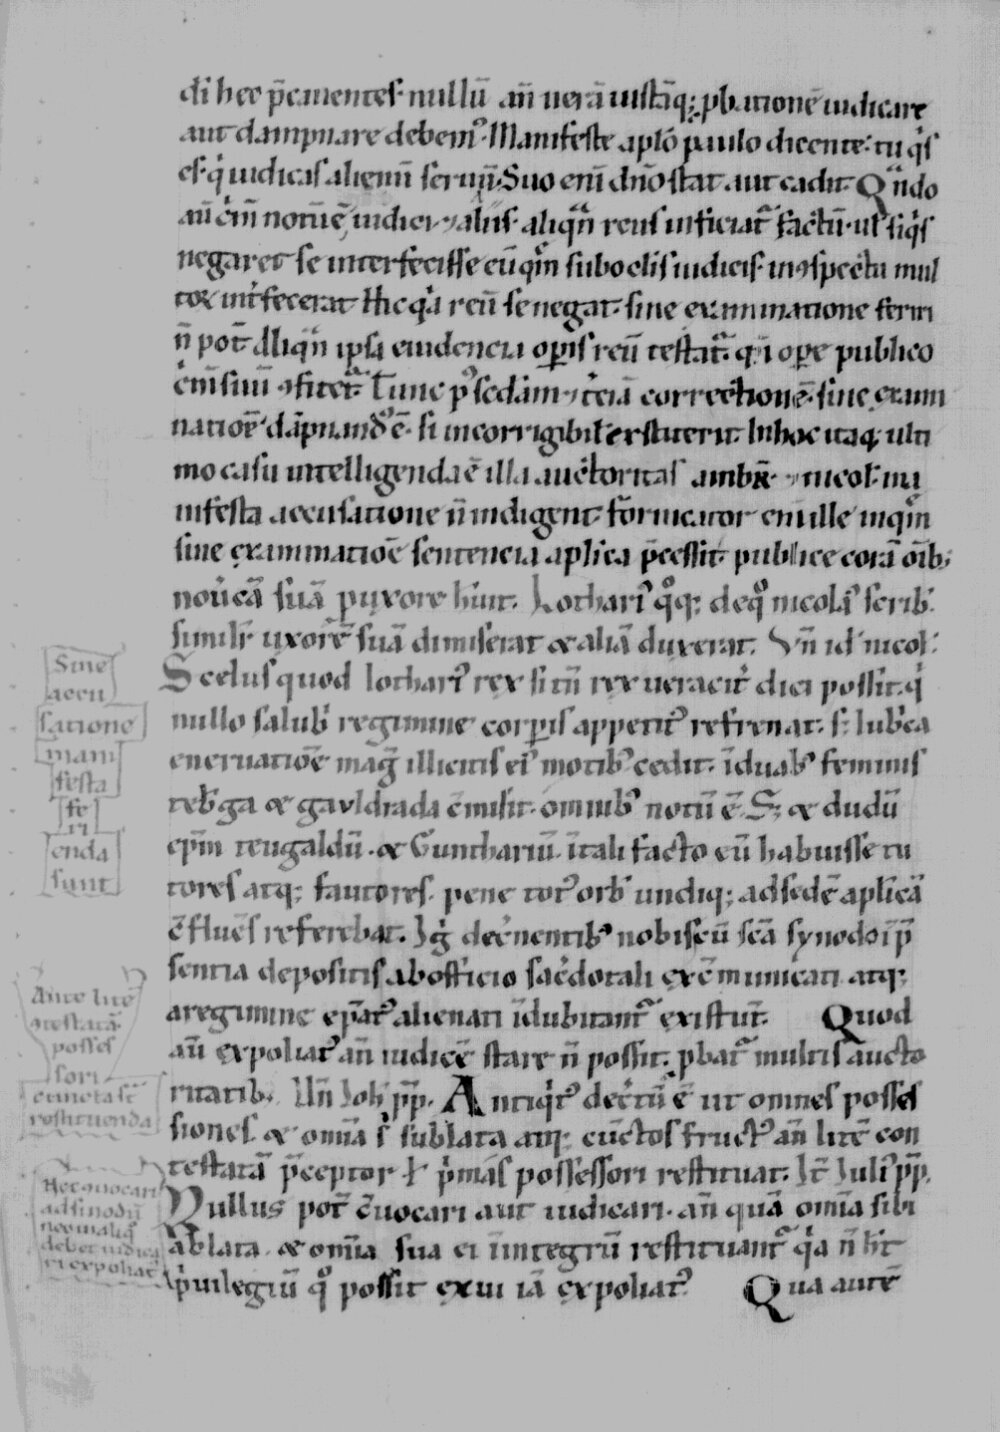 di hec p̄cauentes· nullū an̄ uerā iustāq; ꝓbationē iudicare
aut dampnare debem᷒· Manifeste aplō paulo dicente· tu qͥs
es· qͥ iudicas alienū seruū· Suo eni dn̄o stat aut cadit· Qn̄do
aū cͥm̄ notū ē iudici· ⁊ alius aliqn̄ reus inficiat᷑ factū· ut siqͥs
negaret se interfecisse eū quē sub oclis iudicis· in ꝯspectu mul
toꝝ int̓fecerat Hic qͥa reū se negat· sine examinatione feriri
n̄ pot̄ aliqn̄ ipsa euidencia opis reū testat᷑· qͥ ope publico
cͥm̄ suū ꝯfitet᷑· Tunc p᷒ sedām ⁊ t̓ciā correctionē· sine exami
natiōe dāpnand᷒ ē· si incorrigibił exstiterit· In hoc itaq; ulti
mo casu intelligenda ē illa auctoritas ambꝝ· ⁊ nicol· ma
nifesta accusatione n̄ indigent· fornicator eni ille inqͫ
sine examinatiōe sentencia aplica p̄cessit· publice corā oīb;
nouercā suā ꝓ uxore hūit· Lothari᷒ qͦq; de qͦ nicola᷒ scrib·
simiłr uxorē suā dimiserat & aliā duxerat· Vn̄ id nicol·
Scelus quod lothari᷒ rex si tn̄ rex ueracit̓ dici possit· qͥ
nullo salub̓ regimine corpis appetit᷒ refrenat· s; lub̓ca
eneruatiōe mag̓ illicitis ei᷒ motib᷒ cedit· ī duab᷒ feminis
teb̓ga & gauldrada cͦmisit· omnib᷒ notū ē· S; & dudū
ep̄m teugaldū· & Gunthariū· ī tali facto eū habuisse tu
tores atq; fautores· pene tot᷒ orb̓ undiq; ad sedē aplicā
cͦfluēs referebat· Ig̓ dec̓nentib᷒ nobiscū scā synodo ī p̄
sentia depositis ab officio sac̓dotali excͦmunicati atq;
a regimine ep̄at᷒ alienati īdubitant᷑ existūt· Quod
aū expoliat᷒ an̄ iudicē stare n̄ possit· ꝓbat᷑ multis aucto
ritatib· Vn̄ Joh̄ pp̄· Antiqͥt᷒ dec̓tū ē ut omnes posses
siones· & omīa s̓ sublata atq; cūctos fruct᷒ an̄ litē con
testatā p̄ceptor ł pͥmas possessori restituat· It̄ Juli᷒ pp̄·
Nullus pot̄ cͦuocari aut iudicari· an̄ quā omīa sibi
ablata· & omīa sua ei īintegrū restituant᷑ qͥa n̄ hīt
pͥuilegiū qͦ possit exui iā expoliat᷒ Qua autē
Sine
accu
satione
mani
festa
fe
ri
enda
sunt
Ante litē
ꝯtestatā
posses
sori
cūncta sͭ
restituenda
Nec uocari
ad sinodū
nec in aliqͦ
debet iudica
ri expoliat᷒